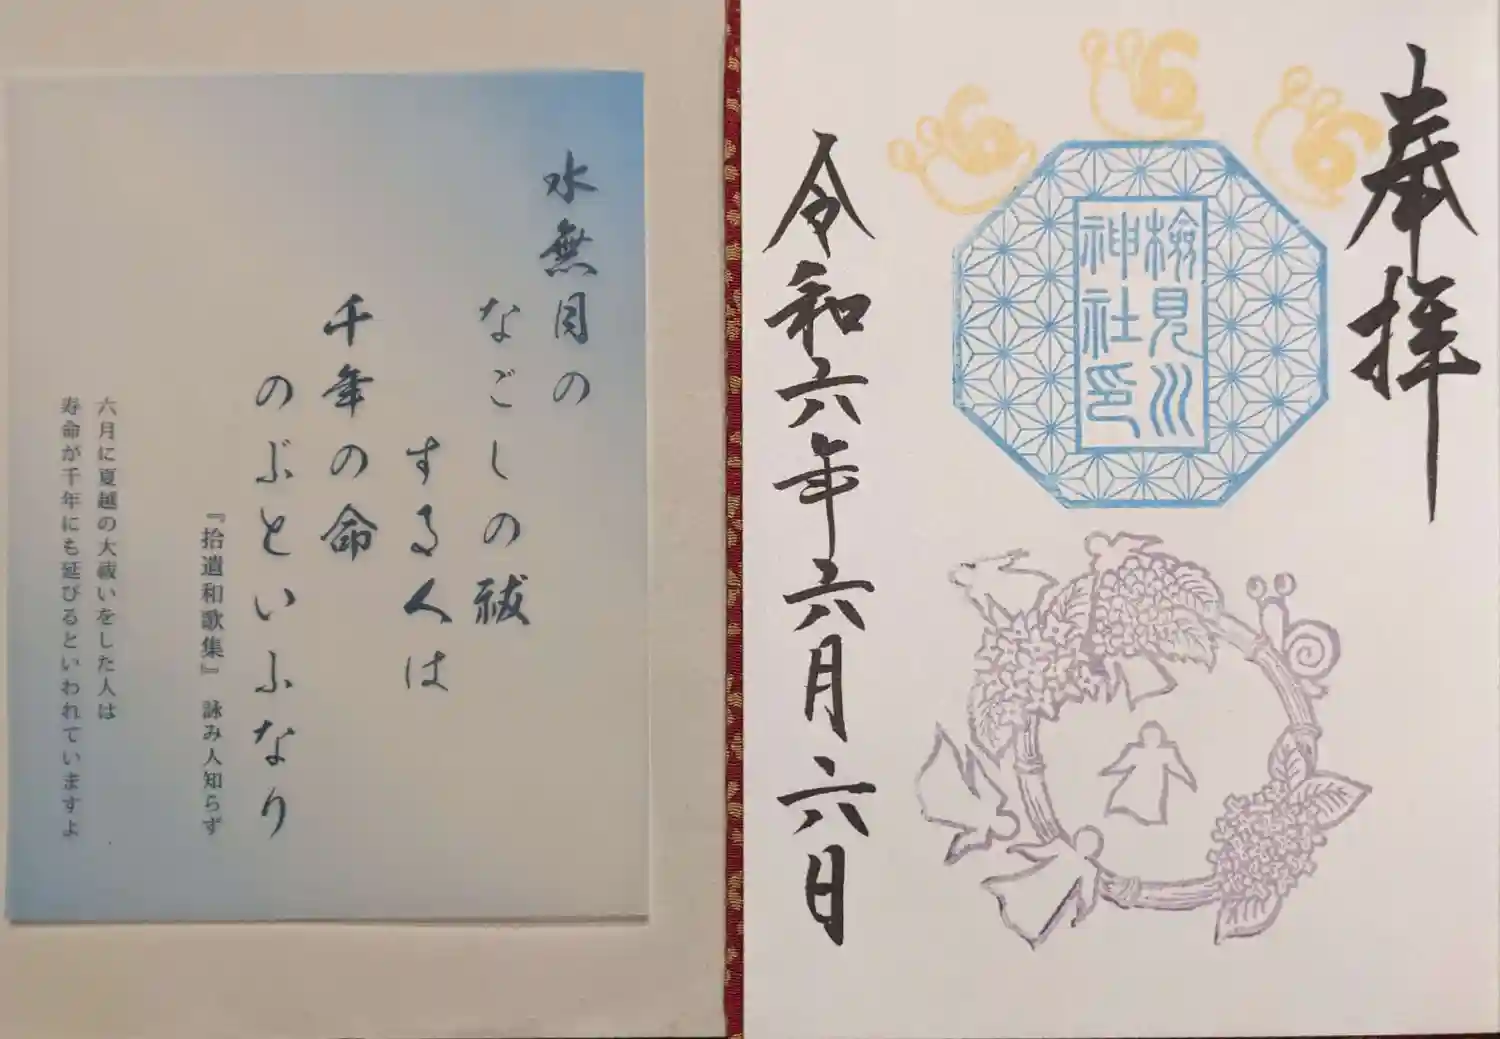 奉拝
検見川
神社印
令和六年六月六日
水無月の
なごしの祓
する人は
千年の命
のぶといふなり
『拾遺和歌集』 詠み人知らず
六月に夏越の大祓いをした人は
寿命が千年にも延びるといわれていますよ